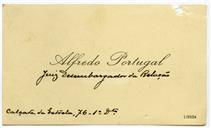 Alfredo Portugal
Juiz Desembargador da Relação
Calçada da Estrela, 76-1º Dto